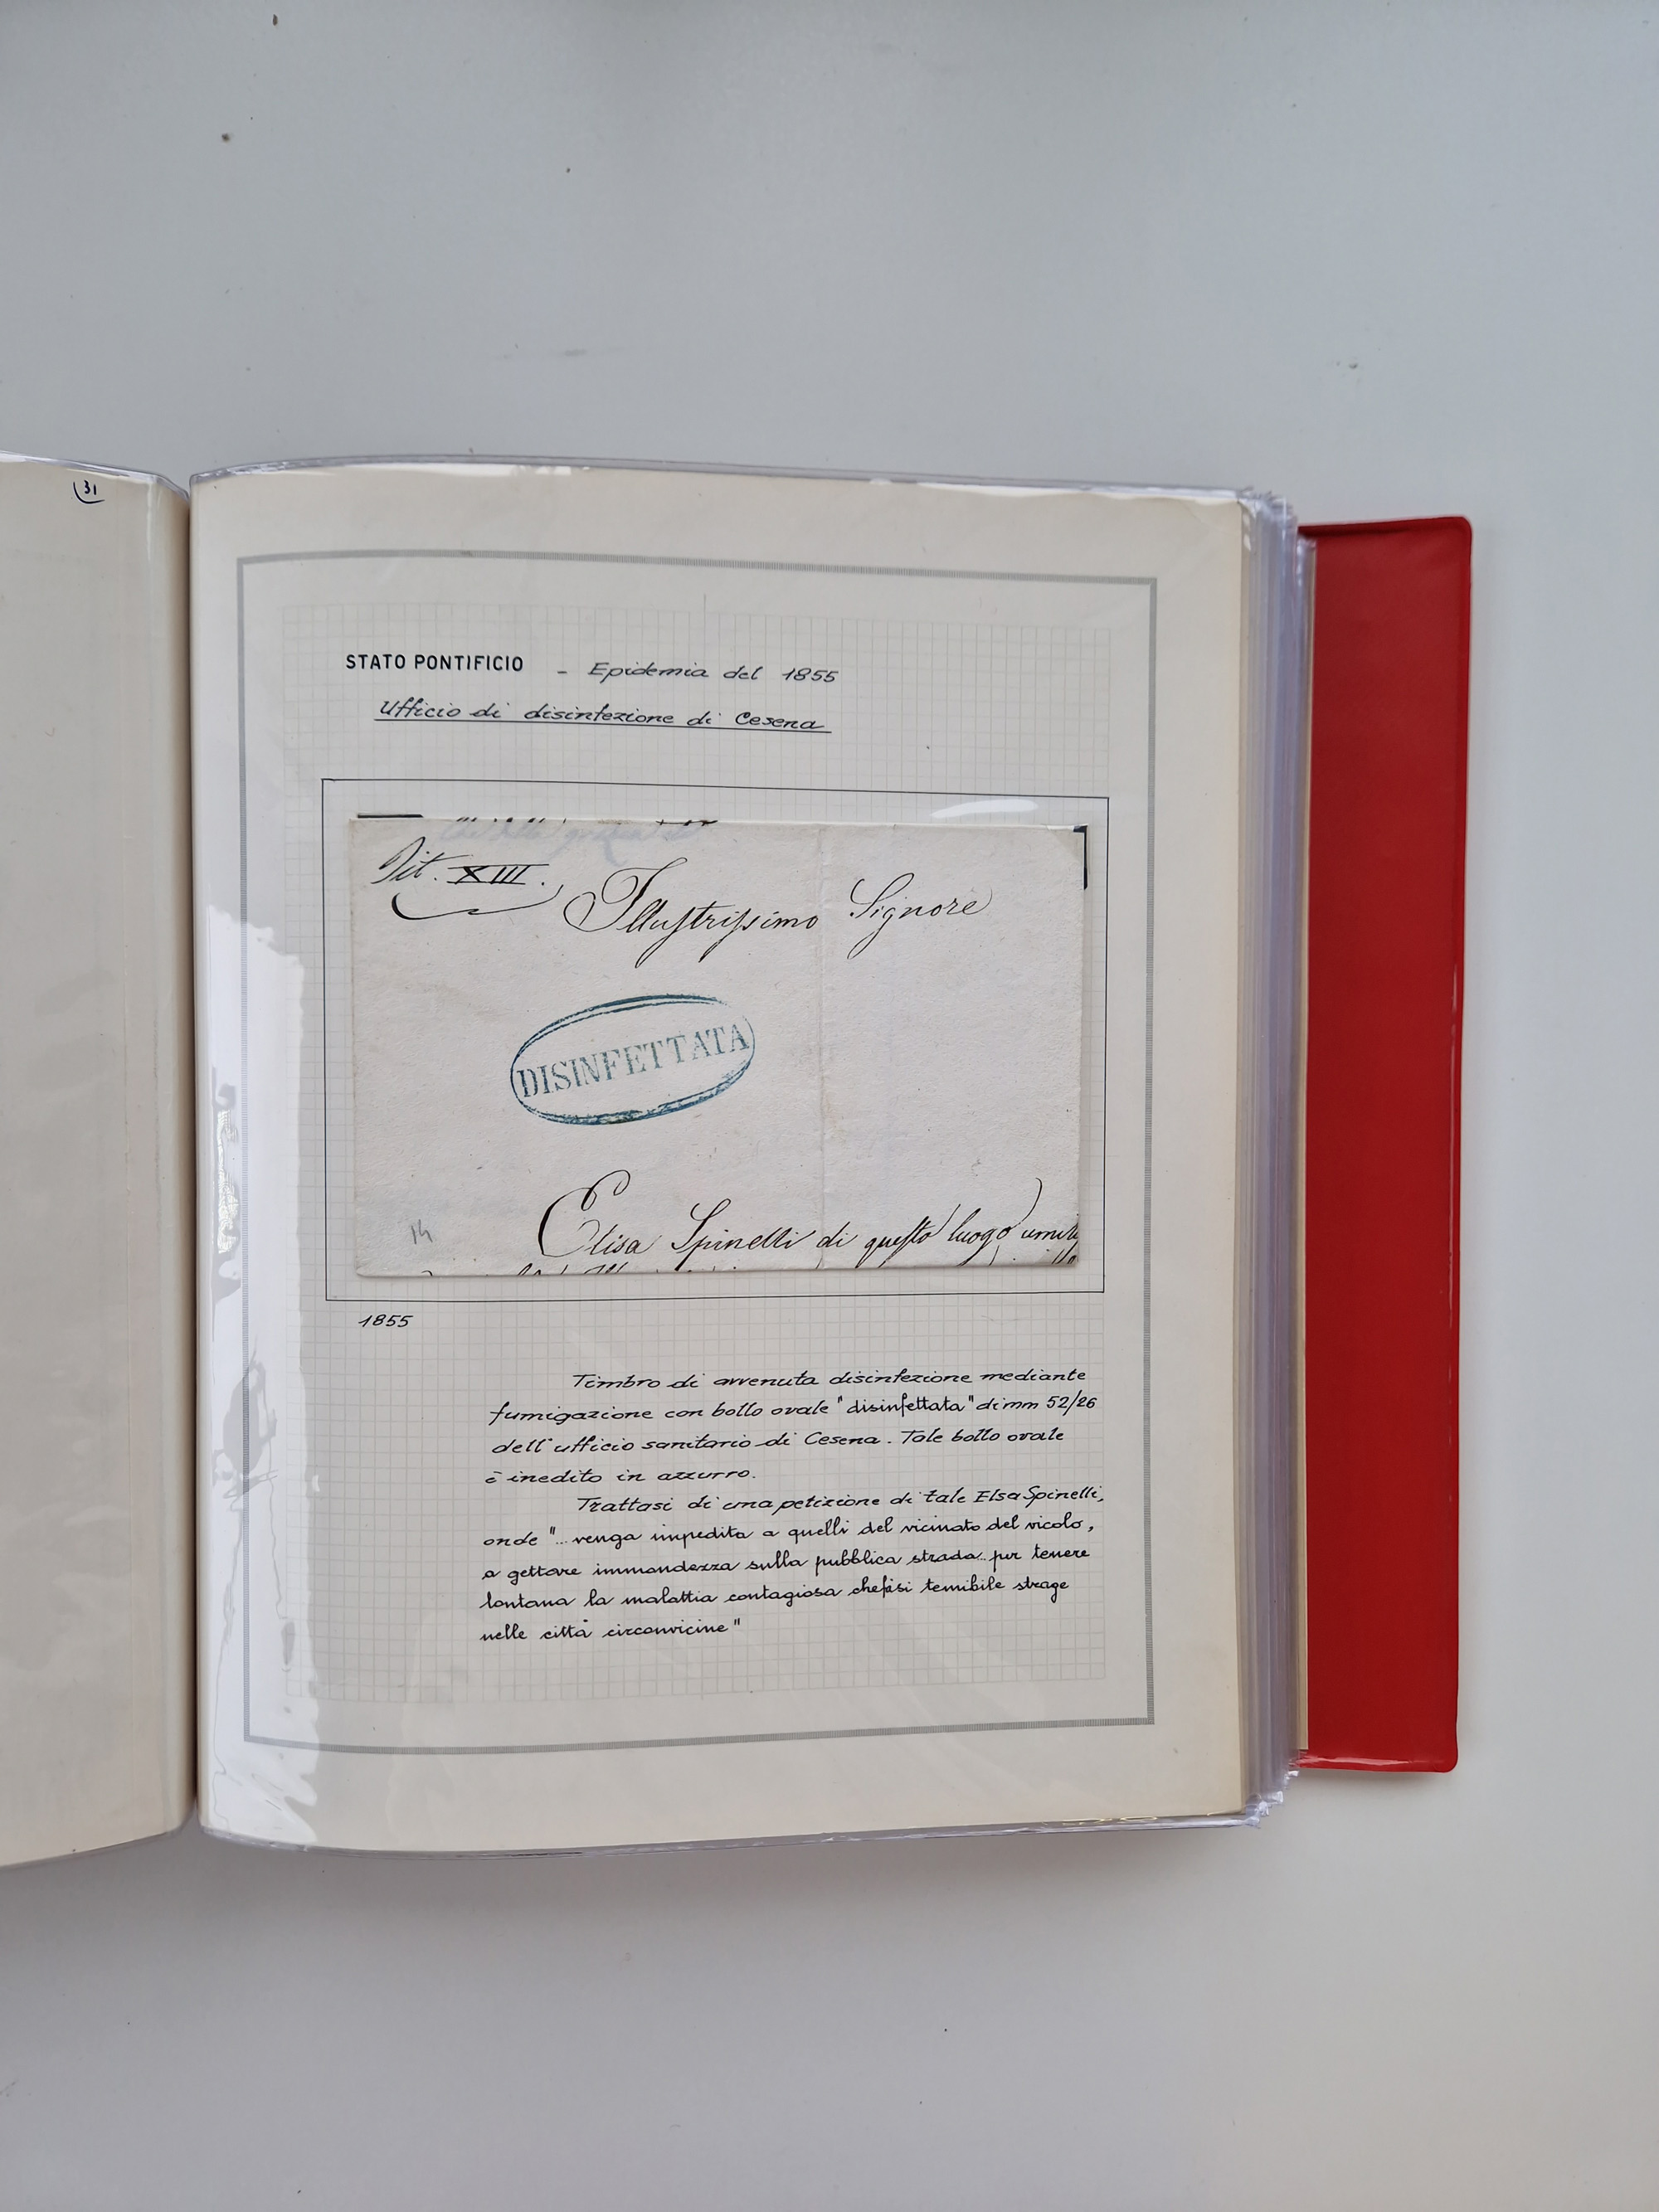 31
STATO PONTIFICIO - Epidemia del 1855
Ufficio di disinfezione di Cesena
Tit. XIII.
Illustrissimo Signore
DISINFETTATA
14
Elisa Spinelli di questo luogo
1855
Timbro di avvenuta disinfezione mediante
fumigazione con bollo ovale "disinfettata" di mm 52/26
dell'ufficio sanitario di Cesena. Tale bollo ovale
è inedito in azzurro.
Trattasi di una petizione di tale Elsa Spinelli,
onde "... venga impedita a quelli del vicinato del vicolo,
a gettare immondezza sulla pubblica strada.. per tenere
lontana la malattia contagiosa che fàsi temibile strage
nelle città circonvicine"